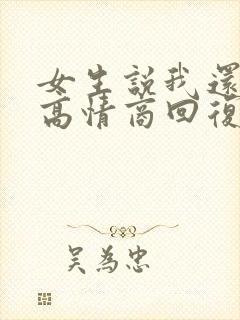 女生說我還
高情商回復
吳為忠